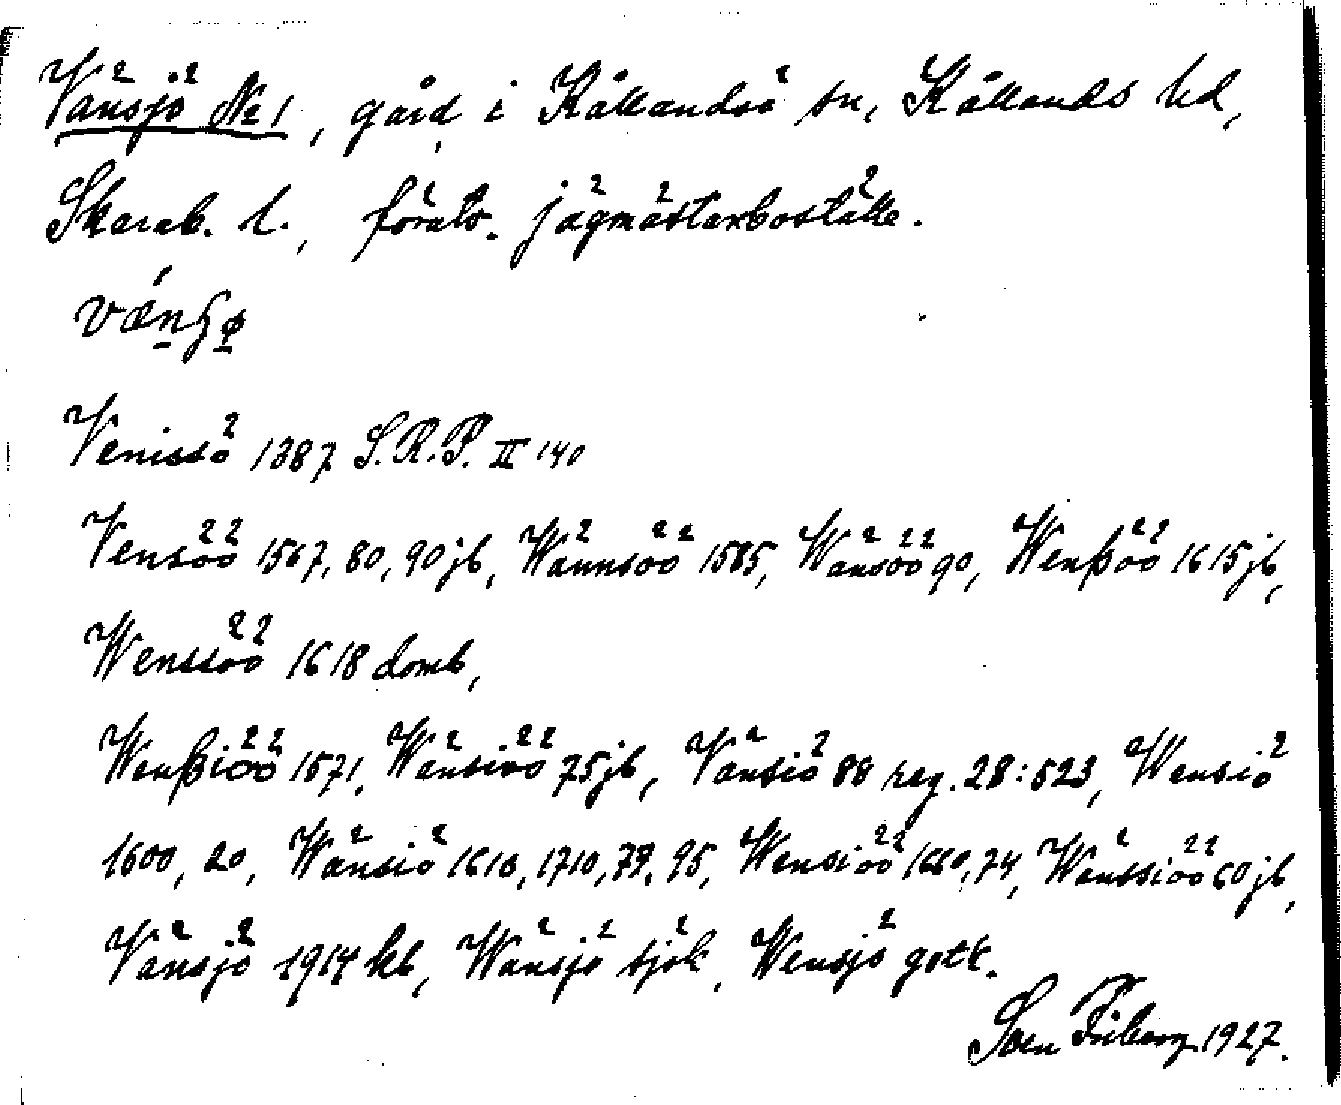 Vänsjö № 1, gård i Kållandsö sn, Kållands hd,
Skarab. l., förutv. jägmästarboställe.
vǽnʃø
Venissö 1387 S.R.P. II 140
Vensöö 1567, 80, 90 jb, Wännsöö 1585, Wänsöö 90, Wenßöö 1615 jb,
Wenssöö 1618 domb,
Wenßiöö 1571, Wänsiöö 75 jb, Vänsiö 88 reg. 28:523, Wensiö
1600, 20, Wänsiö 1610, 1710, 79, 95, Wensiöö 1660, 74, Wänssiöö 60 jb,
Vänsjö 1914 kb, Wänsjö sjök, Wensjö gstk.
Sven Friberg 1927.